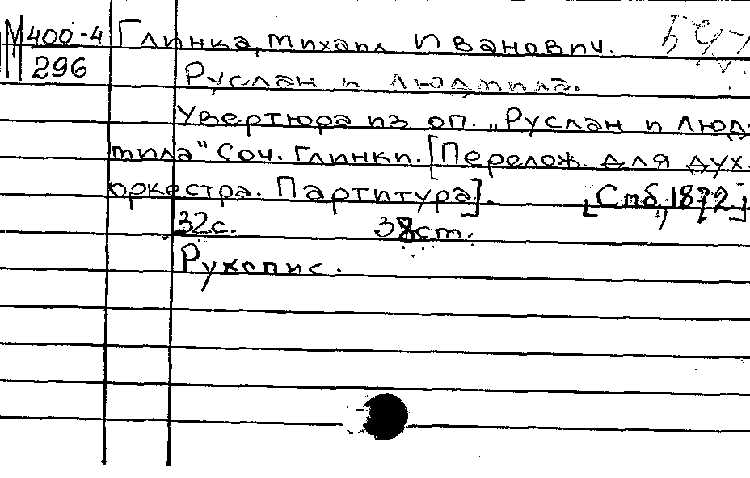 М 400-4 Глинка, Михаил Иванович.
296 Руслан и Людмила.
Увертюра из оп. „Руслан и Люд-
мила" Соч. Глинки. [Перелож. для дух.
оркестра. Партитура]. [Спб, 1872]
32с. 38см.
Рукопис.